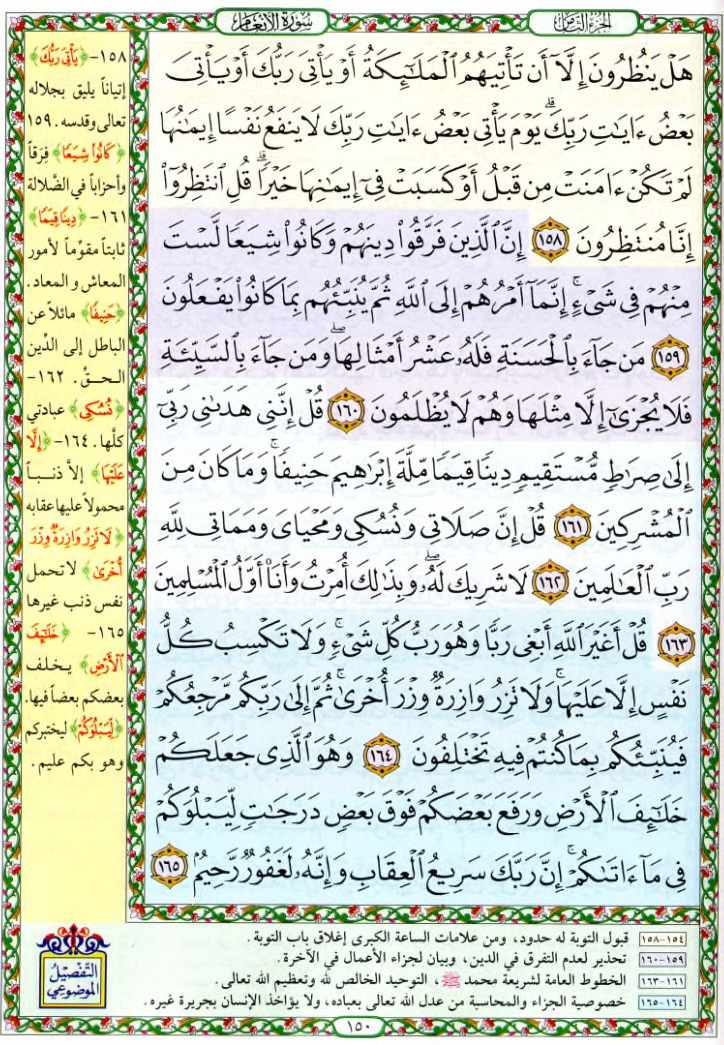 الجزء الثامن
سورة الأنعام
هَلْ يَنظُرُونَ إِلَّآ أَن تَأْتِيَهُمُ ٱلْمَلَٰٓئِكَةُ أَوْ يَأْتِىَ رَبُّكَ أَوْ يَأْتِىَ
بَعْضُ ءَايَٰتِ رَبِّكَ ۗ يَوْمَ يَأْتِى بَعْضُ ءَايَٰتِ رَبِّكَ لَا يَنفَعُ نَفْسًا إِيمَٰنُهَا
لَمْ تَكُنْ ءَامَنَتْ مِن قَبْلُ أَوْ كَسَبَتْ فِىٓ إِيمَٰنِهَا خَيْرًا ۗ قُلِ ٱنتَظِرُوٓا۟
إِنَّا مُنتَظِرُونَ ١٥٨ إِنَّ ٱلَّذِينَ فَرَّقُوا۟ دِينَهُمْ وَكَانُوا۟ شِيَعًا لَّسْتَ
مِنْهُمْ فِى شَىْءٍ ۚ إِنَّمَآ أَمْرُهُمْ إِلَى ٱللَّهِ ثُمَّ يُنَبِّئُهُم بِمَا كَانُوا۟ يَفْعَلُونَ
١٥٩ مَن جَآءَ بِٱلْحَسَنَةِ فَلَهُۥ عَشْرُ أَمْثَالِهَا ۖ وَمَن جَآءَ بِٱلسَّيِّئَةِ
فَلَا يُجْزَىٰٓ إِلَّا مِثْلَهَا وَهُمْ لَا يُظْلَمُونَ ١٦٠ قُلْ إِنَّنِى هَدَىٰنِى رَبِّىٓ
إِلَىٰ صِرَٰطٍ مُّسْتَقِيمٍ دِينًا قِيَمًا مِّلَّةَ إِبْرَٰهِيمَ حَنِيفًا ۚ وَمَا كَانَ مِنَ
ٱلْمُشْرِكِينَ ١٦١ قُلْ إِنَّ صَلَاتِى وَنُسُكِى وَمَحْيَاىَ وَمَمَاتِى لِلَّهِ
رَبِّ ٱلْعَٰلَمِينَ ١٦٢ لَا شَرِيكَ لَهُۥ ۖ وَبِذَٰلِكَ أُمِرْتُ وَأَنَا۠ أَوَّلُ ٱلْمُسْلِمِينَ
١٦٣ قُلْ أَغَيْرَ ٱللَّهِ أَبْغِى رَبًّا وَهُوَ رَبُّ كُلِّ شَىْءٍ ۚ وَلَا تَكْسِبُ كُلُّ
نَفْسٍ إِلَّا عَلَيْهَا ۚ وَلَا تَزِرُ وَازِرَةٌ وِزْرَ أُخْرَىٰ ۚ ثُمَّ إِلَىٰ رَبِّكُم مَّرْجِعُكُمْ
فَيُنَبِّئُكُم بِمَا كُنتُمْ فِيهِ تَخْتَلِفُونَ ١٦٤ وَهُوَ ٱلَّذِى جَعَلَكُمْ
خَلَٰٓئِفَ ٱلْأَرْضِ وَرَفَعَ بَعْضَكُمْ فَوْقَ بَعْضٍ دَرَجَٰتٍ لِّيَبْلُوَكُمْ
فِى مَآ ءَاتَىٰكُمْ ۗ إِنَّ رَبَّكَ سَرِيعُ ٱلْعِقَابِ وَإِنَّهُۥ لَغَفُورٌ رَّحِيمٌۢ ١٦٥
١٥٨- ﴿يَأْتِىَ رَبُّكَ﴾
إتياناً يليق بجلاله
تعالى وقدسه. ١٥٩
﴿كَانُوا۟ شِيَعًا﴾ فِرَقاً
وأحزاباً في الضَّلالة
١٦١- ﴿دِينًا قِيَمًا﴾
ثابتاً مقوِّماً لأمور
المعاش والمعاد.
﴿حَنِيفًا﴾ مائلاً عن
الباطل إلى الدِّين
الحقّ. ١٦٢-
﴿نُسُكِى﴾ عبادتي
كلَّها. ١٦٤- ﴿إِلَّا
عَلَيْهَا﴾ إلاَّ ذنباً
محمولاً عليها عقابه
﴿لَا تَزِرُ وَازِرَةٌ وِزْرَ
أُخْرَىٰ﴾ لا تحمل
نفس ذنب غيرها
١٦٥- ﴿خَلَٰٓئِفَ
ٱلْأَرْضِ﴾ يخلف
بعضكم بعضاً فيها.
﴿لِّيَبْلُوَكُمْ﴾ ليختبركم
وهو بكم عليم.
١٥٤-١٥٨ قبول التوبة له حدود، ومن علامات الساعة الكبرى إغلاق باب التوبة.
١٥٩-١٦٠ تحذير لعدم التفرق في الدين، وبيان لجزاء الأعمال في الآخرة.
١٦١-١٦٣ الخطوط العامة لشريعة محمد ﷺ، التوحيد الخالص لله وتعظيم الله تعالى.
١٦٤-١٦٥ خصوصية الجزاء والمحاسبة من عدل الله تعالى بعباده، ولا يؤاخذ الإنسان بجريرة غيره.
التفصيل
الموضوعي
١٥٠